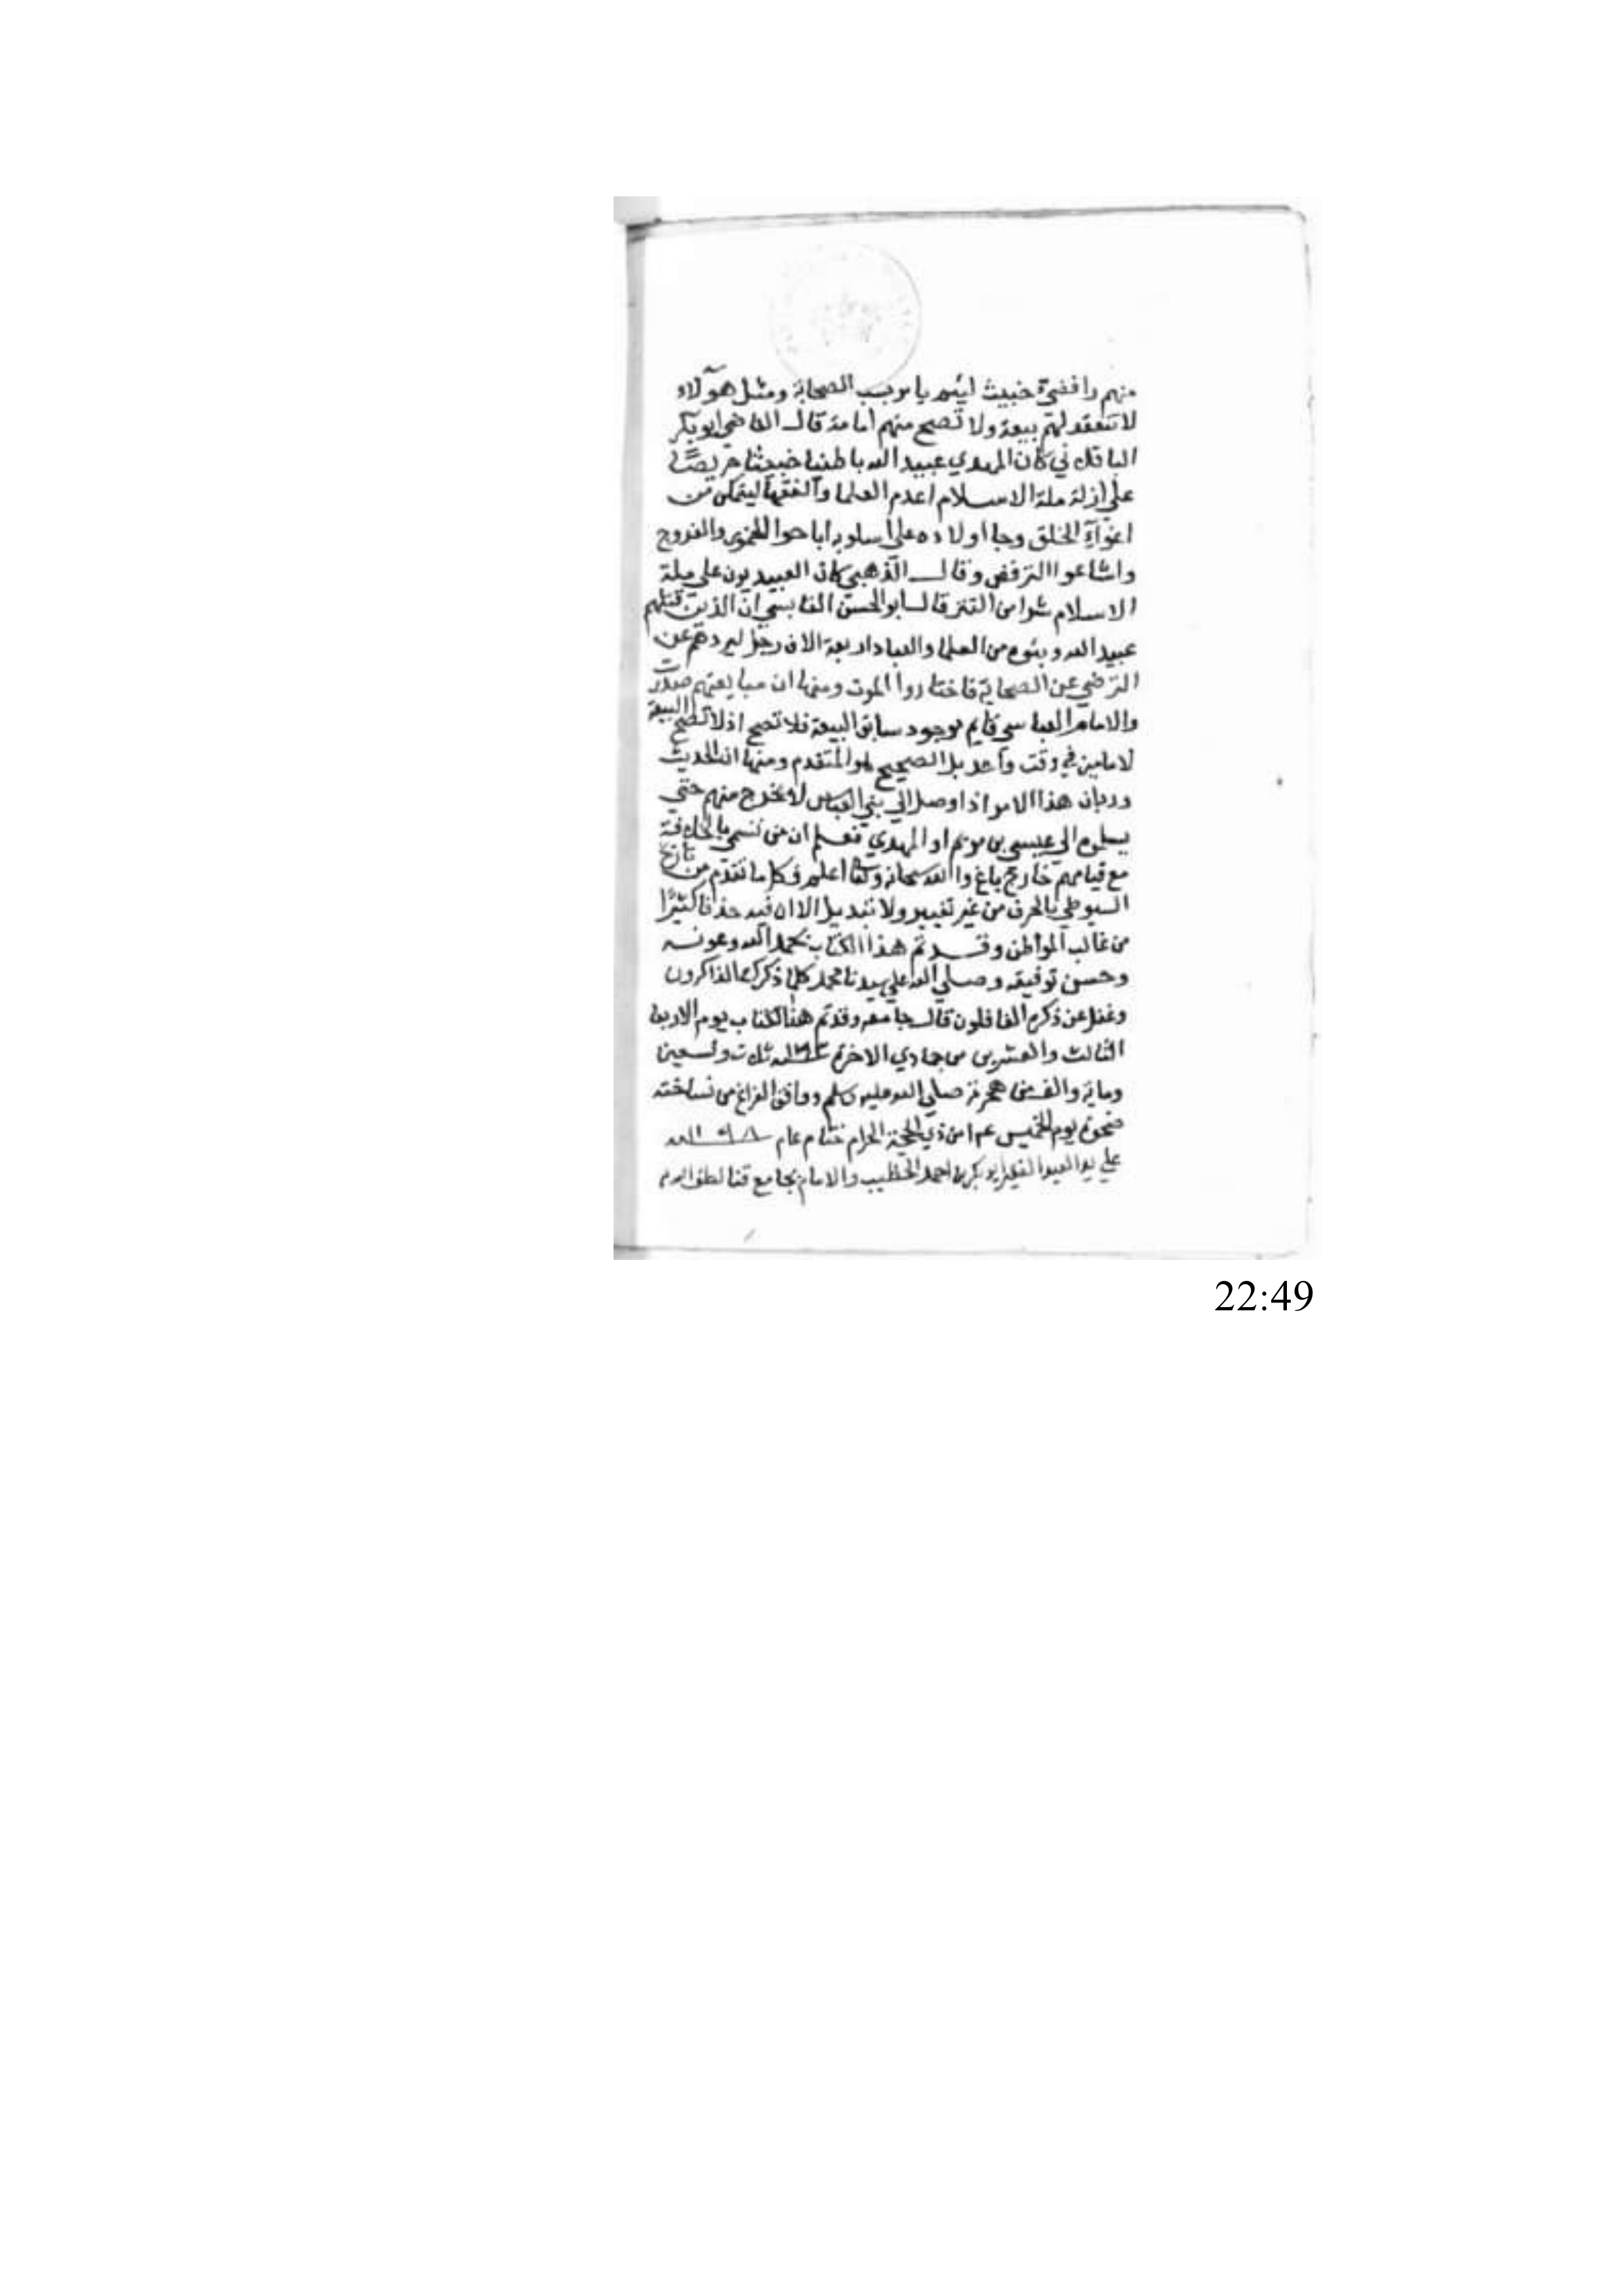 منهم رافضي خبيث لئيم يامر بسب الصحابة ومثل هولاء
لا تنعقد لهم بيعة ولا تصح منهم امامة قال القاضي ابو بكر
الباقلاني كان المهدي عبيد الله باطنيا خبيثا حريصا
علي ازلة ملة الاسلام اعدم العلما والفقها ليتمكن من
اغوآء الخلق وجا اولاده علي اسلوبه اباحوا الخمور والفروج
واشاعوا الترفض وقال الذهبي كان العبيديون علي ملة
الاسلام شرا من التتر قال ابو الحسن القابسي ان الذين قتلهم
عبيد الله وبنوه من العلما والعباد اربعة الاف رجل ليردهم عن
الترضي عن الصحابة فاختاروا الموت ومنها ان مبايعتهم صدرت
والامام العباسي قايم موجود سابق البيعة فلا تصح اذ لا تصح البيعة
لامامين في وقت واحد بل الصحيح هو المتقدم ومنها ان الحديث
ورد بان هذا الامر اذا وصل الي بني العباس لا يخرج منهم حتي
يسلموه الي عيسي بن مريم او المهدي فعلم ان من تسمي بالخلافة
مع قيامهم خارج باغ والله سبحانه وتعا اعلم وكل ما تقدم من تاريخ
السيوطي بالحرف من غير تغيير ولا تبديل الا ان فيه حذفا كثيرا
من غالب المواطن وقد تم هذا الكتاب بحمد الله وعونه
وحسن توفيقه وصلي الله علي سيدنا محمد كلما ذكرك الذاكرون
وغفل عن ذكره الغافلون قال جامعه وقد تم هذا الكتاب يوم الاربعا
الثالث والعشرين من جمادي الاخرة ثلاث وتسعين
وماية والف من هجرته صلي الله عليه وسلم ووافق الفراغ من نساخته
ضحوة يوم الخميس من ذي الحجة الحرام ختام عام
علي يد العبد الفقير ابو بكر بن احمد الخطيب والامام بجامع قنا لطف الله
22:49